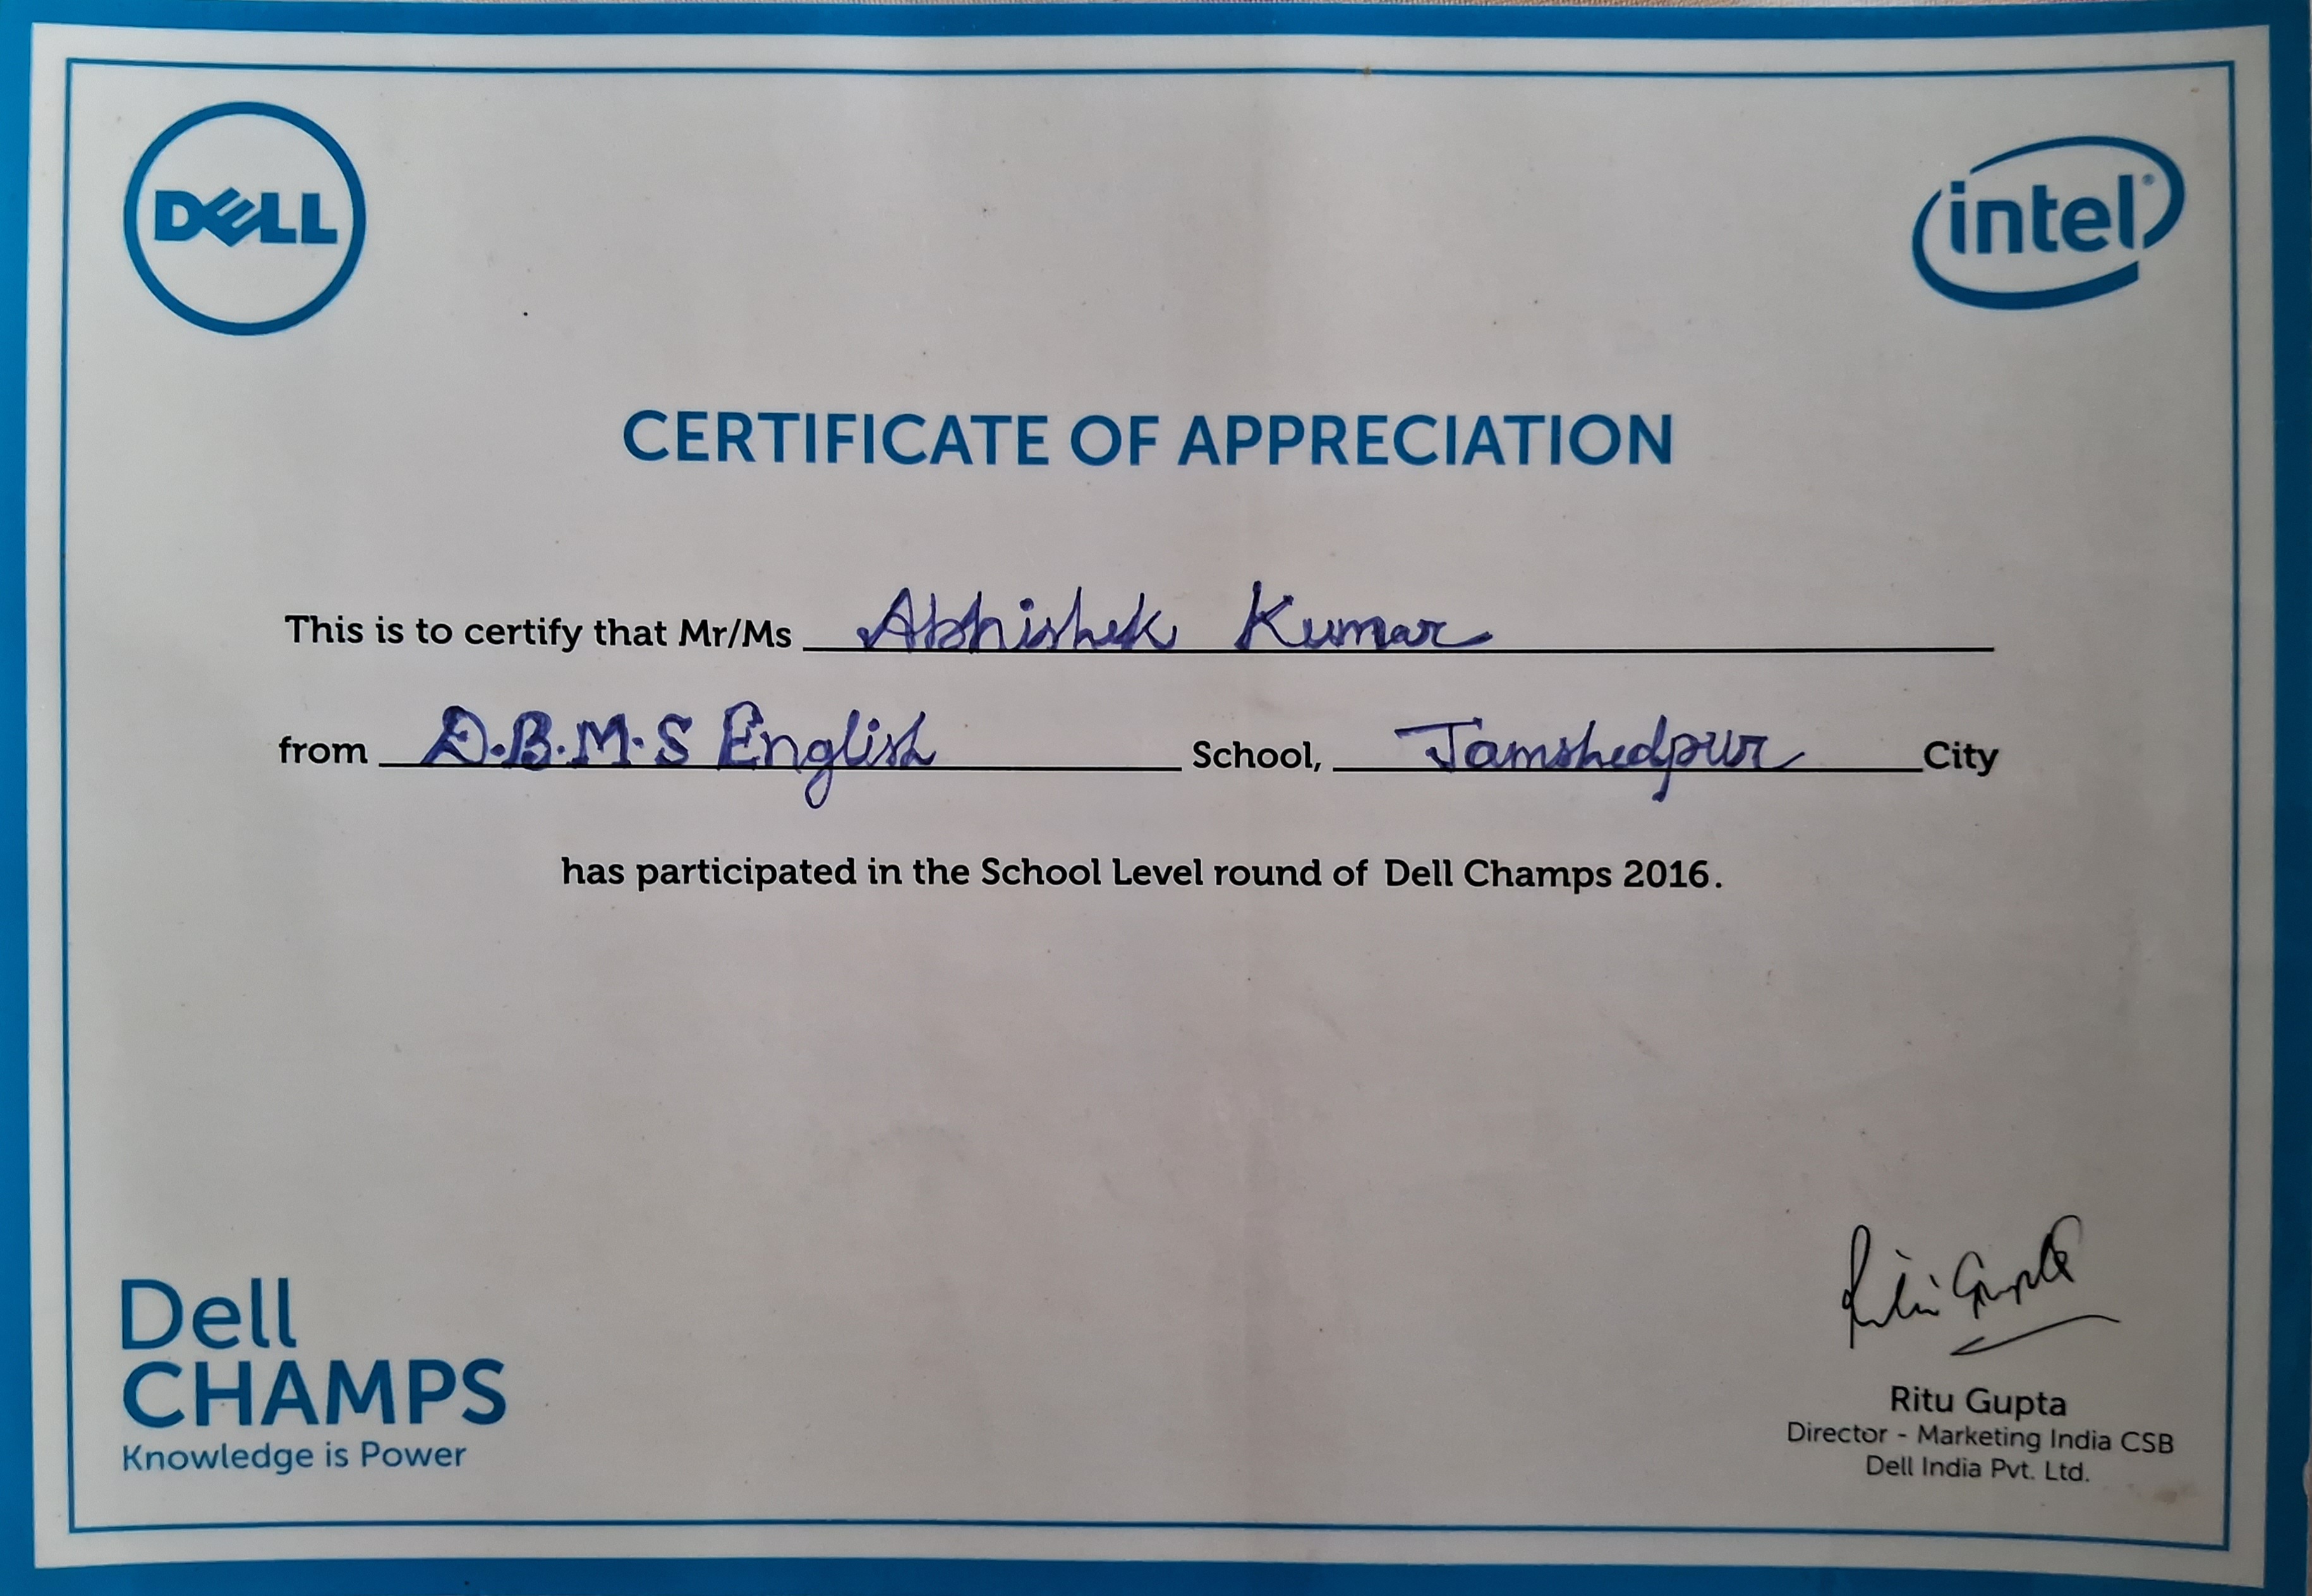 DELL
intel®
CERTIFICATE OF APPRECIATION
This is to certify that Mr/Ms Abhishek Kumar
from D.B.M.S English School, Jamshedpur City
has participated in the School Level round of Dell Champs 2016.
Dell
CHAMPS
Knowledge is Power
Ritu Gupta
Ritu Gupta
Director - Marketing India CSB
Dell India Pvt. Ltd.